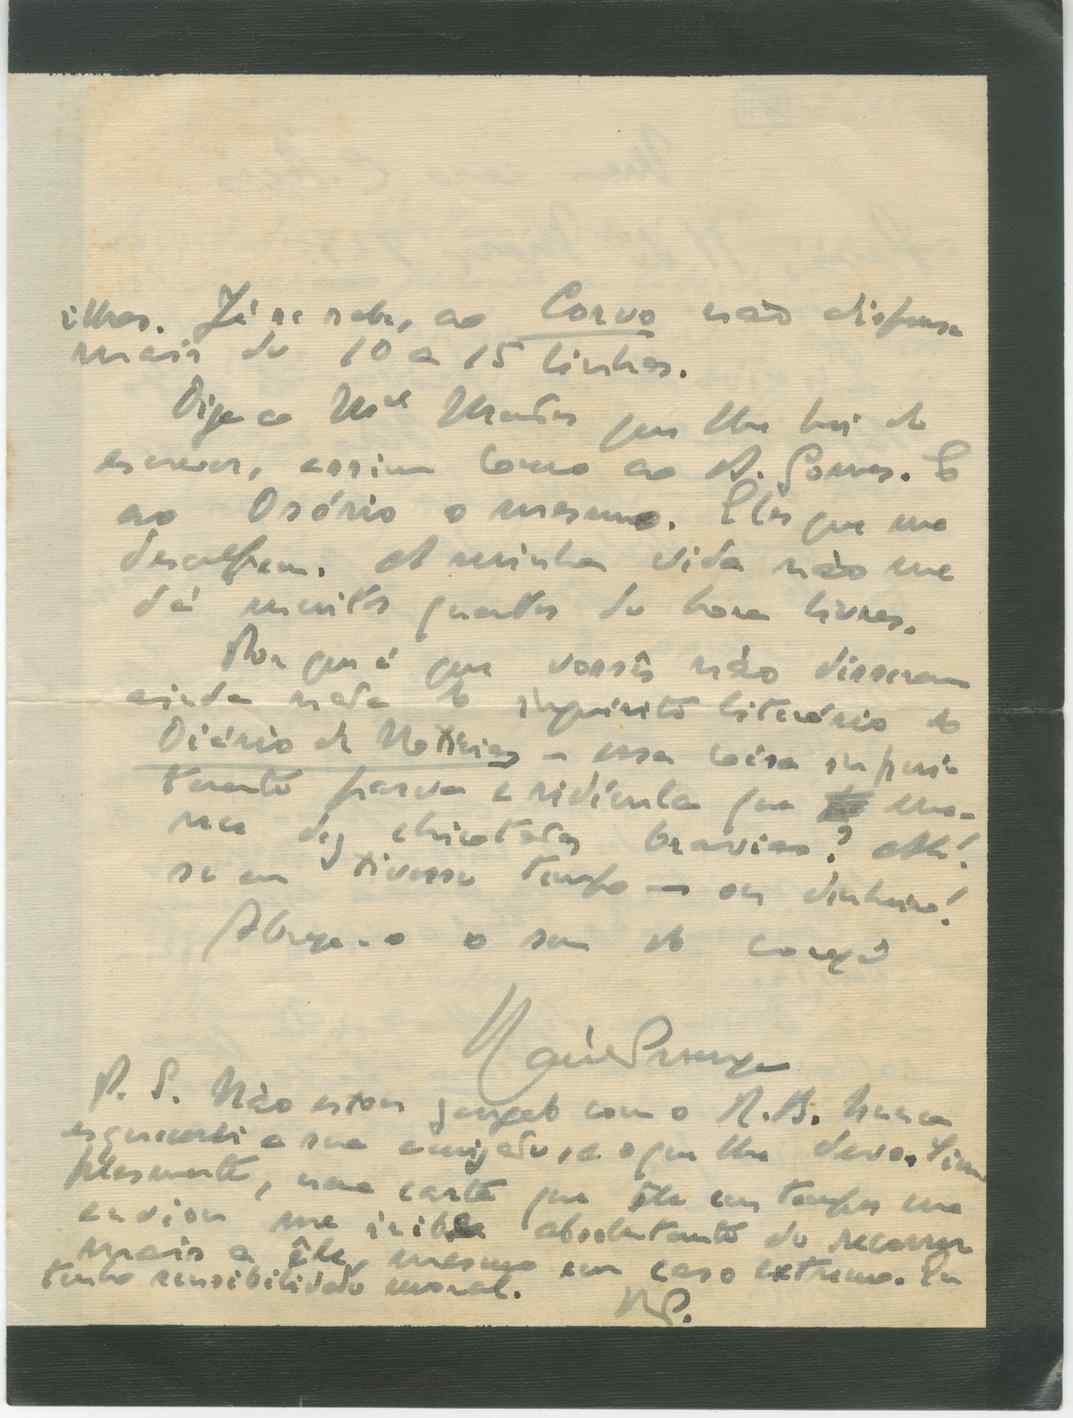 ilhas. Já se sabe, ao Corvo não dispense
mais de 10 a 15 linhas.
Diga ao M.el Mendes que lhe hei de
escrever, assim como ao A. Gomes. E
ao Osório o mesmo. Eles que me
desculpem. A minha vida não me
dá muitos quartos de hora livres.
Por que é que vossês não disseram
ainda nada do inquérito literário do
Diário de Notícias – essa coisa imperti-
nente parva e ridícula que me-
rece dez chicotadas bravias? Ah!
se eu tivesse tempo – ou dinheiro!
Abraça-o o seu do coração
P. S. Não estou zangado com o R. B. Nunca
esquecerei a sua amizade, e o que lhe devo. Sim-
plesmente, uma carta que êle em tempos me
enviou me inibe absolutamente de recorrer
mais a êle, mesmo em caso extremo. Eu
tenho sensibilidade moral.